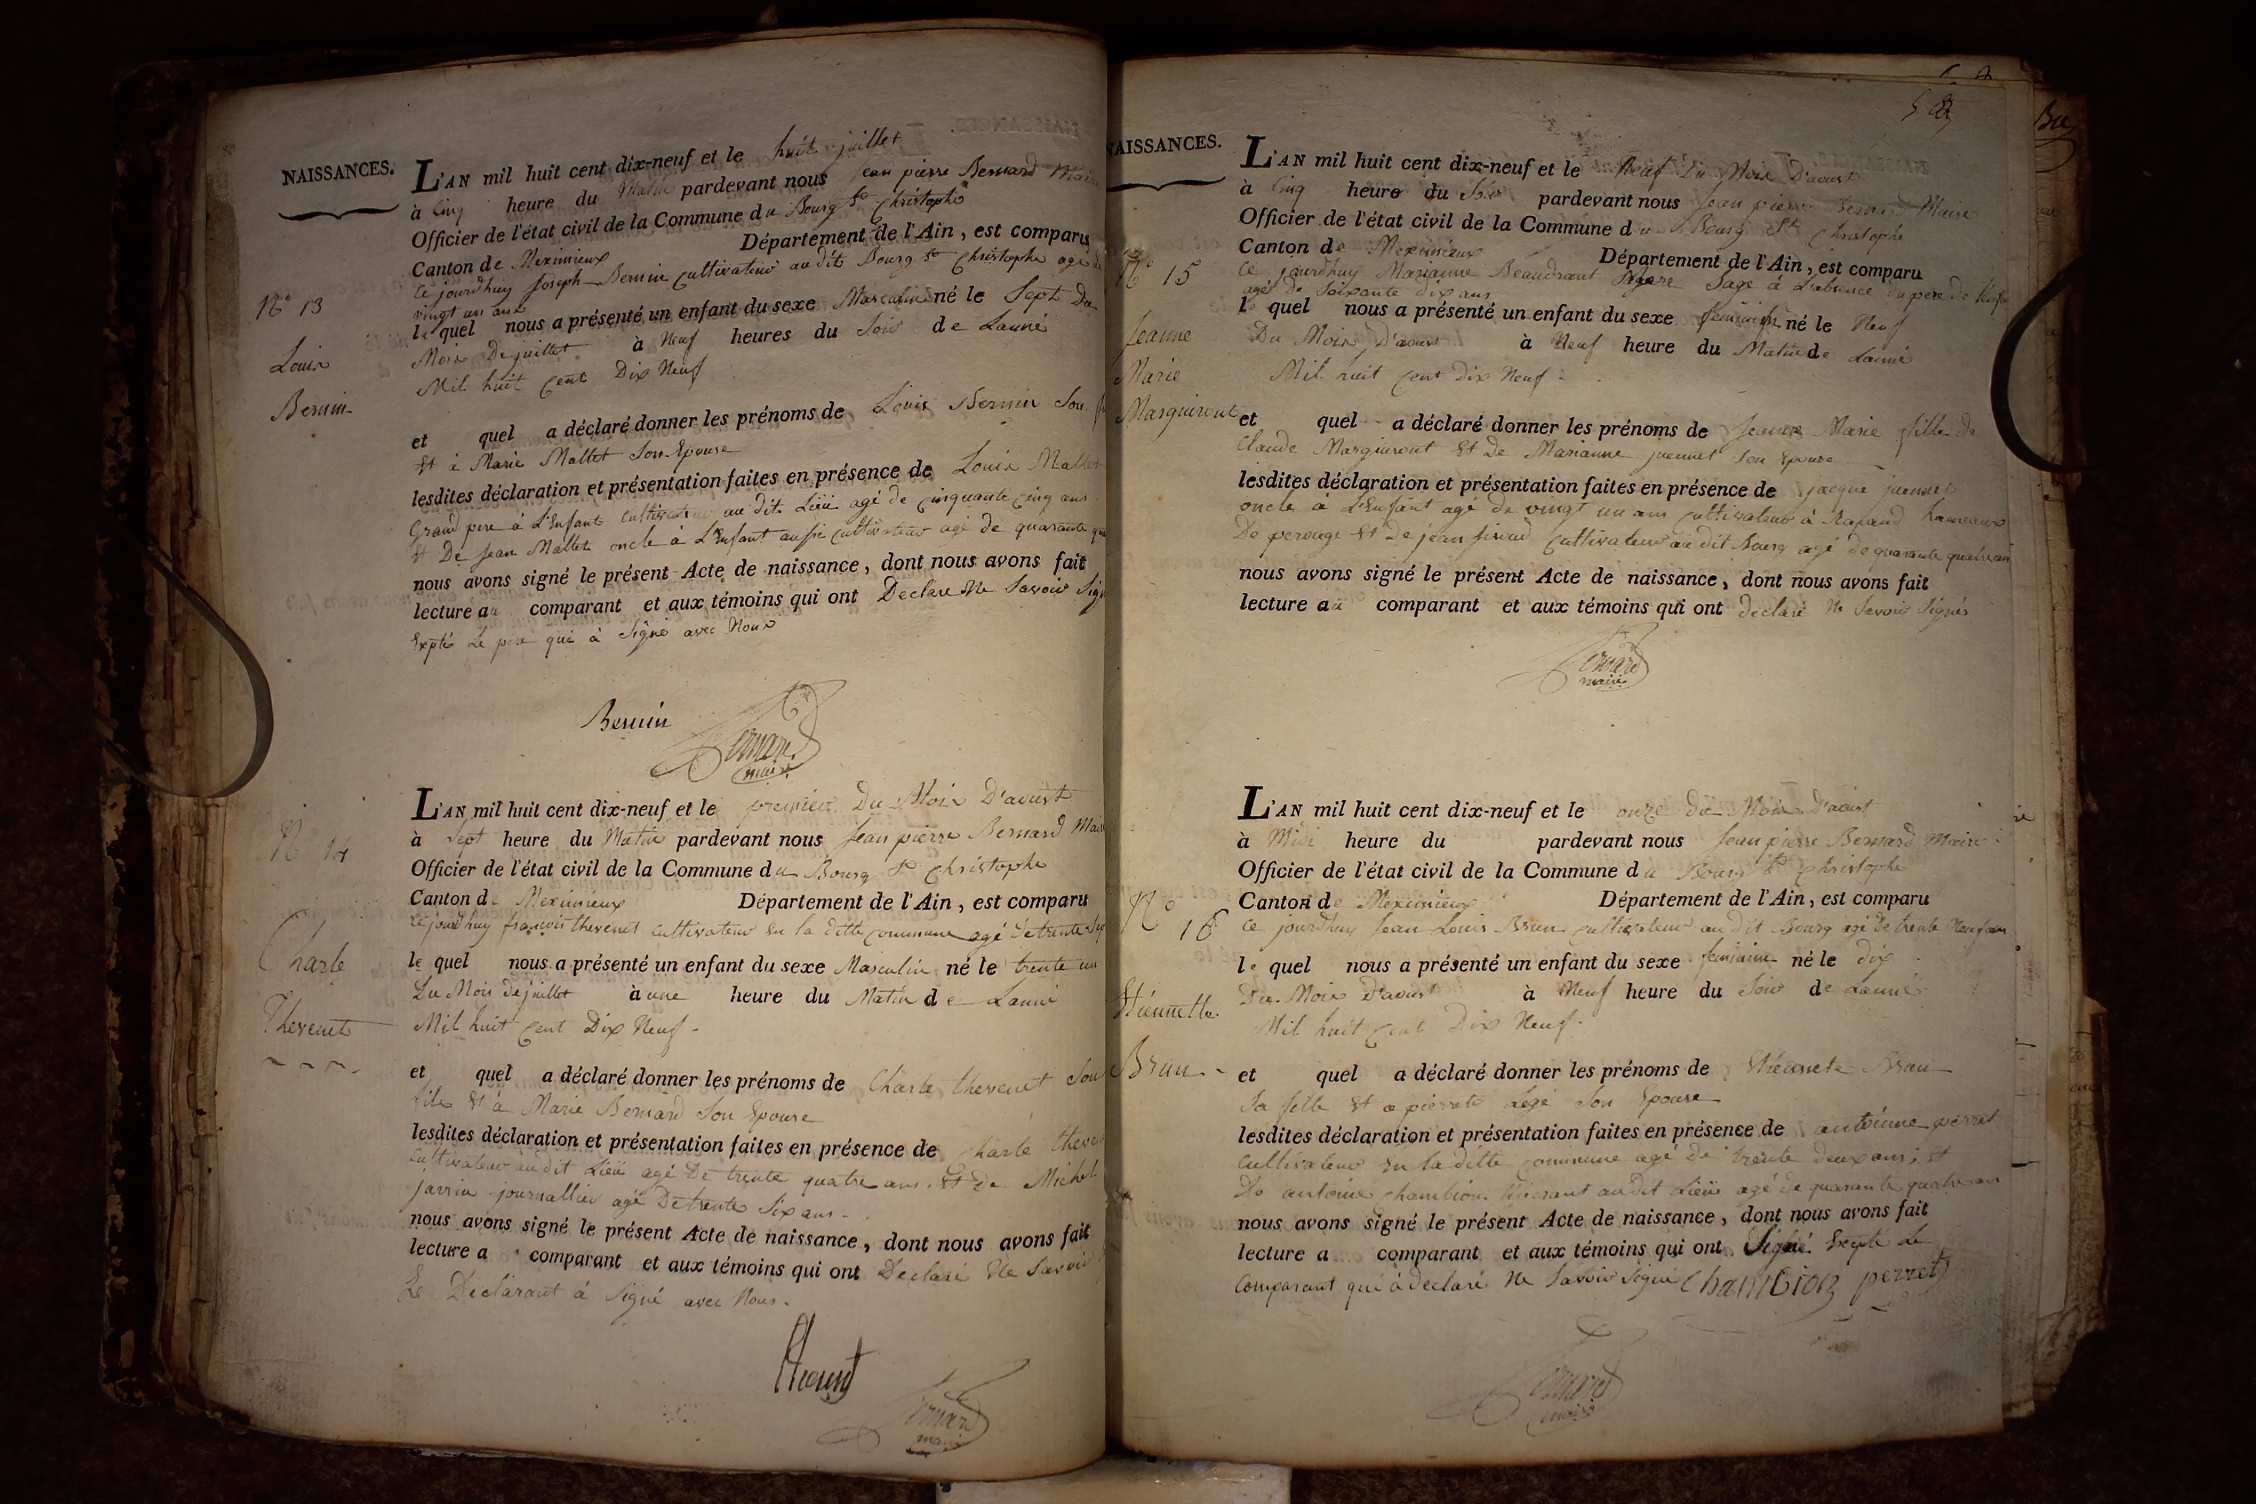 NAISSANCES.
N° 13
Louis
Bernin
L'AN mil huit cent dix-neuf et le huit juillet
à Cinq heure du Matin pardevant nous Jean pierre Bernard Maire
Officier de l'état civil de la Commune du Bourg St Christophe
Canton de Meximieux Département de l'Ain, est comparu
Ce jourdhuy Joseph Bernin Cultivateur au dit Bourg St Christophe agé de
vingt un ans
le quel nous a présenté un enfant du sexe Masculin né le Sept Du
Mois De juillet à Neuf heures du Soir de Lanné
Mil huit Cent Dix Neuf
et quel a déclaré donner les prénoms de Louis Bernin Son
Et à Marie Mallet Son Epouse
lesdites déclaration et présentation faites en présence de Louis Mallet
Grand pere à L'Enfant Cultivateur au dit Lieu agé de Cinquante Cinq ans
Et De Jean Mallet oncle à L'Enfant aussi Cultivateur agé de quarante
nous avons signé le présent Acte de naissance, dont nous avons fait
lecture au comparant et aux témoins qui ont Declaré Ne Savoir
Expté Le pere qui à Signé avec Nous
Bernin
Bernard
maire
N 14
Charle
Thevenet
L'AN mil huit cent dix-neuf et le premier Du Mois D'aoust
à Sept heure du Matin pardevant nous Jean pierre Bernard
Officier de l'état civil de la Commune du Bourg St Christophe
Canton de Meximieux Département de l'Ain, est comparu
Ce jourdhuy françois thevenet Cultivateur En la ditte Commune agé de trente
le quel nous a présenté un enfant du sexe Masculin né le trente un
Du Mois de juillet à une heure du Matin de Lanné
Mil huit Cent Dix Neuf
et quel a déclaré donner les prénoms de Charle thevenet Son
fils Et à Marie Bernard Son Epouse
lesdites déclaration et présentation faites en présence de Charle
Cultivateur au dit Lieu agé De trente quatre ans Et de Michel
Jarrin journallier agé De trente Six ans
nous avons signé le présent Acte de naissance, dont nous avons fait
lecture a comparant et aux témoins qui ont Declaré Ne Savoir
Le Declarant à Signé avec Nous.
Bernard
maire
NAISSANCES.
N° 15
Jeanne
Marie
L'AN mil huit cent dix-neuf et le Neuf Du Mois D'aoust
à Cinq heure du Soir pardevant nous Jean pierre Bernard Maire
Officier de l'état civil de la Commune du Bourg St Christophe
Canton de Meximieux Département de l'Ain, est comparu
Ce jourdhuy Marianne Sage à L'absence du pere de
agé de Soixante dix ans
le quel nous a présenté un enfant du sexe feminin né le Neuf
Du Mois D'aoust à Neuf heure du Matin de Lanné
Mil huit Cent Dix Neuf
et quel a déclaré donner les prénoms de Jeanne Marie fille de
Claude Et De Marianne juennet Son Epouse
lesdites déclaration et présentation faites en présence de jacque juennet
oncle à L'Enfant agé de vingt un ans Cultivateur à Rapand hameaux
De perouge Et De jean Cultivateur au dit Bourg agé de quarante quatre ans
nous avons signé le présent Acte de naissance, dont nous avons fait
lecture au comparant et aux témoins qui ont declaré Ne Savoir Signer
Bernard
maire
N° 16
Etiennette
Brun
L'AN mil huit cent dix-neuf et le onze du Mois D'aoust
à Midi heure du pardevant nous Jean pierre Bernard Maire
Officier de l'état civil de la Commune du Bourg St Christophe
Canton de Meximieux Département de l'Ain, est comparu
Ce jourdhuy Jean Louis Brun Cultivateur au dit Bourg agé de trente Neuf ans
le quel nous a présenté un enfant du sexe feminin né le dix
Du Mois d'aoust à Neuf heure du Soir de Lanné
Mil huit Cent Dix Neuf
et quel a déclaré donner les prénoms de Etiennete Brun
Sa fille Et a pierrete Son Epouse
lesdites déclaration et présentation faites en présence de antoinne perret
Cultivateur En la ditte Commune agé De trente deux ans Et
De antoine chambion au dit Lieu agé de quarante quatre ans
nous avons signé le présent Acte de naissance, dont nous avons fait
lecture a comparant et aux témoins qui ont Signé Excepte Le
Comparant qui à declaré Ne Savoir Signé Chambion perret
Bernard
maire